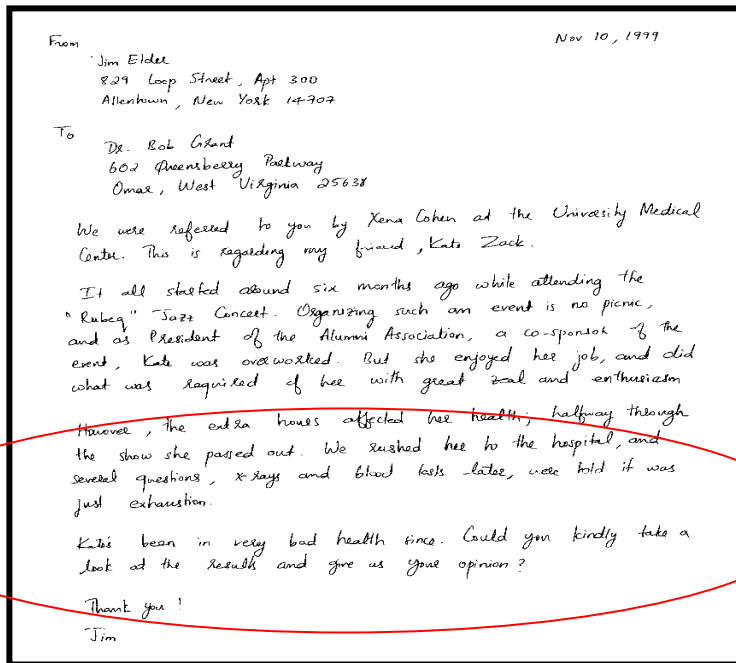 From
Nov 10, 1999
Jim Elder
829 Loop Street, Apt 300
Allentown, New York 14707
To
Dr. Bob Grant
602 Queensberry Parkway
Omar, West Virginia 25638
We were referred to you by Xena Cohen at the University Medical
Center. This is regarding my friend, Kate Zack.
It all started around six months ago while attending the
"Rubeq" Jazz Concert. Organizing such an event is no picnic,
and as President of the Alumni Association, a co-sponsor of the
event, Kate was overworked. But she enjoyed her job, and did
what was required of her with great zeal and enthusiasm
However, the extra hours affected her health; halfway through
the show she passed out. We rushed her to the hospital, and
several questions, x-rays and blood tests later, were told it was
just exhaustion.
Kate's been in very bad health since. Could you kindly take a
look at the results and give us your opinion?
Thank you!
Jim